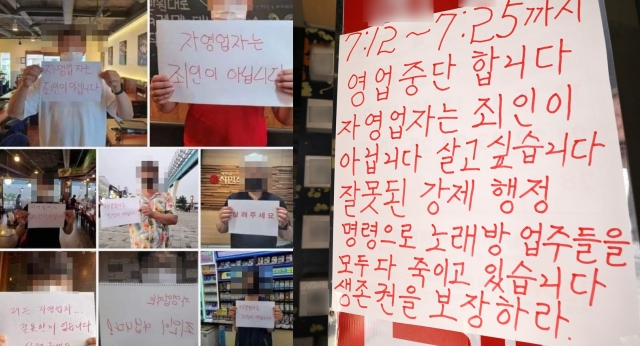 자영업자는
죄인이 아닙니다
자영업자는
죄인이 아닙니다
살려주세요
저는 자영업자...
자영업자는
죄인이 아닙니다
7:12~7:25까지
영업중단 합니다
자영업자는 죄인이
아닙니다 살고싶습니다
잘못된 강제 행정
명령으로 노래방 업주들을
모두다 죽이고 있습니다
생존권을 보장하라.